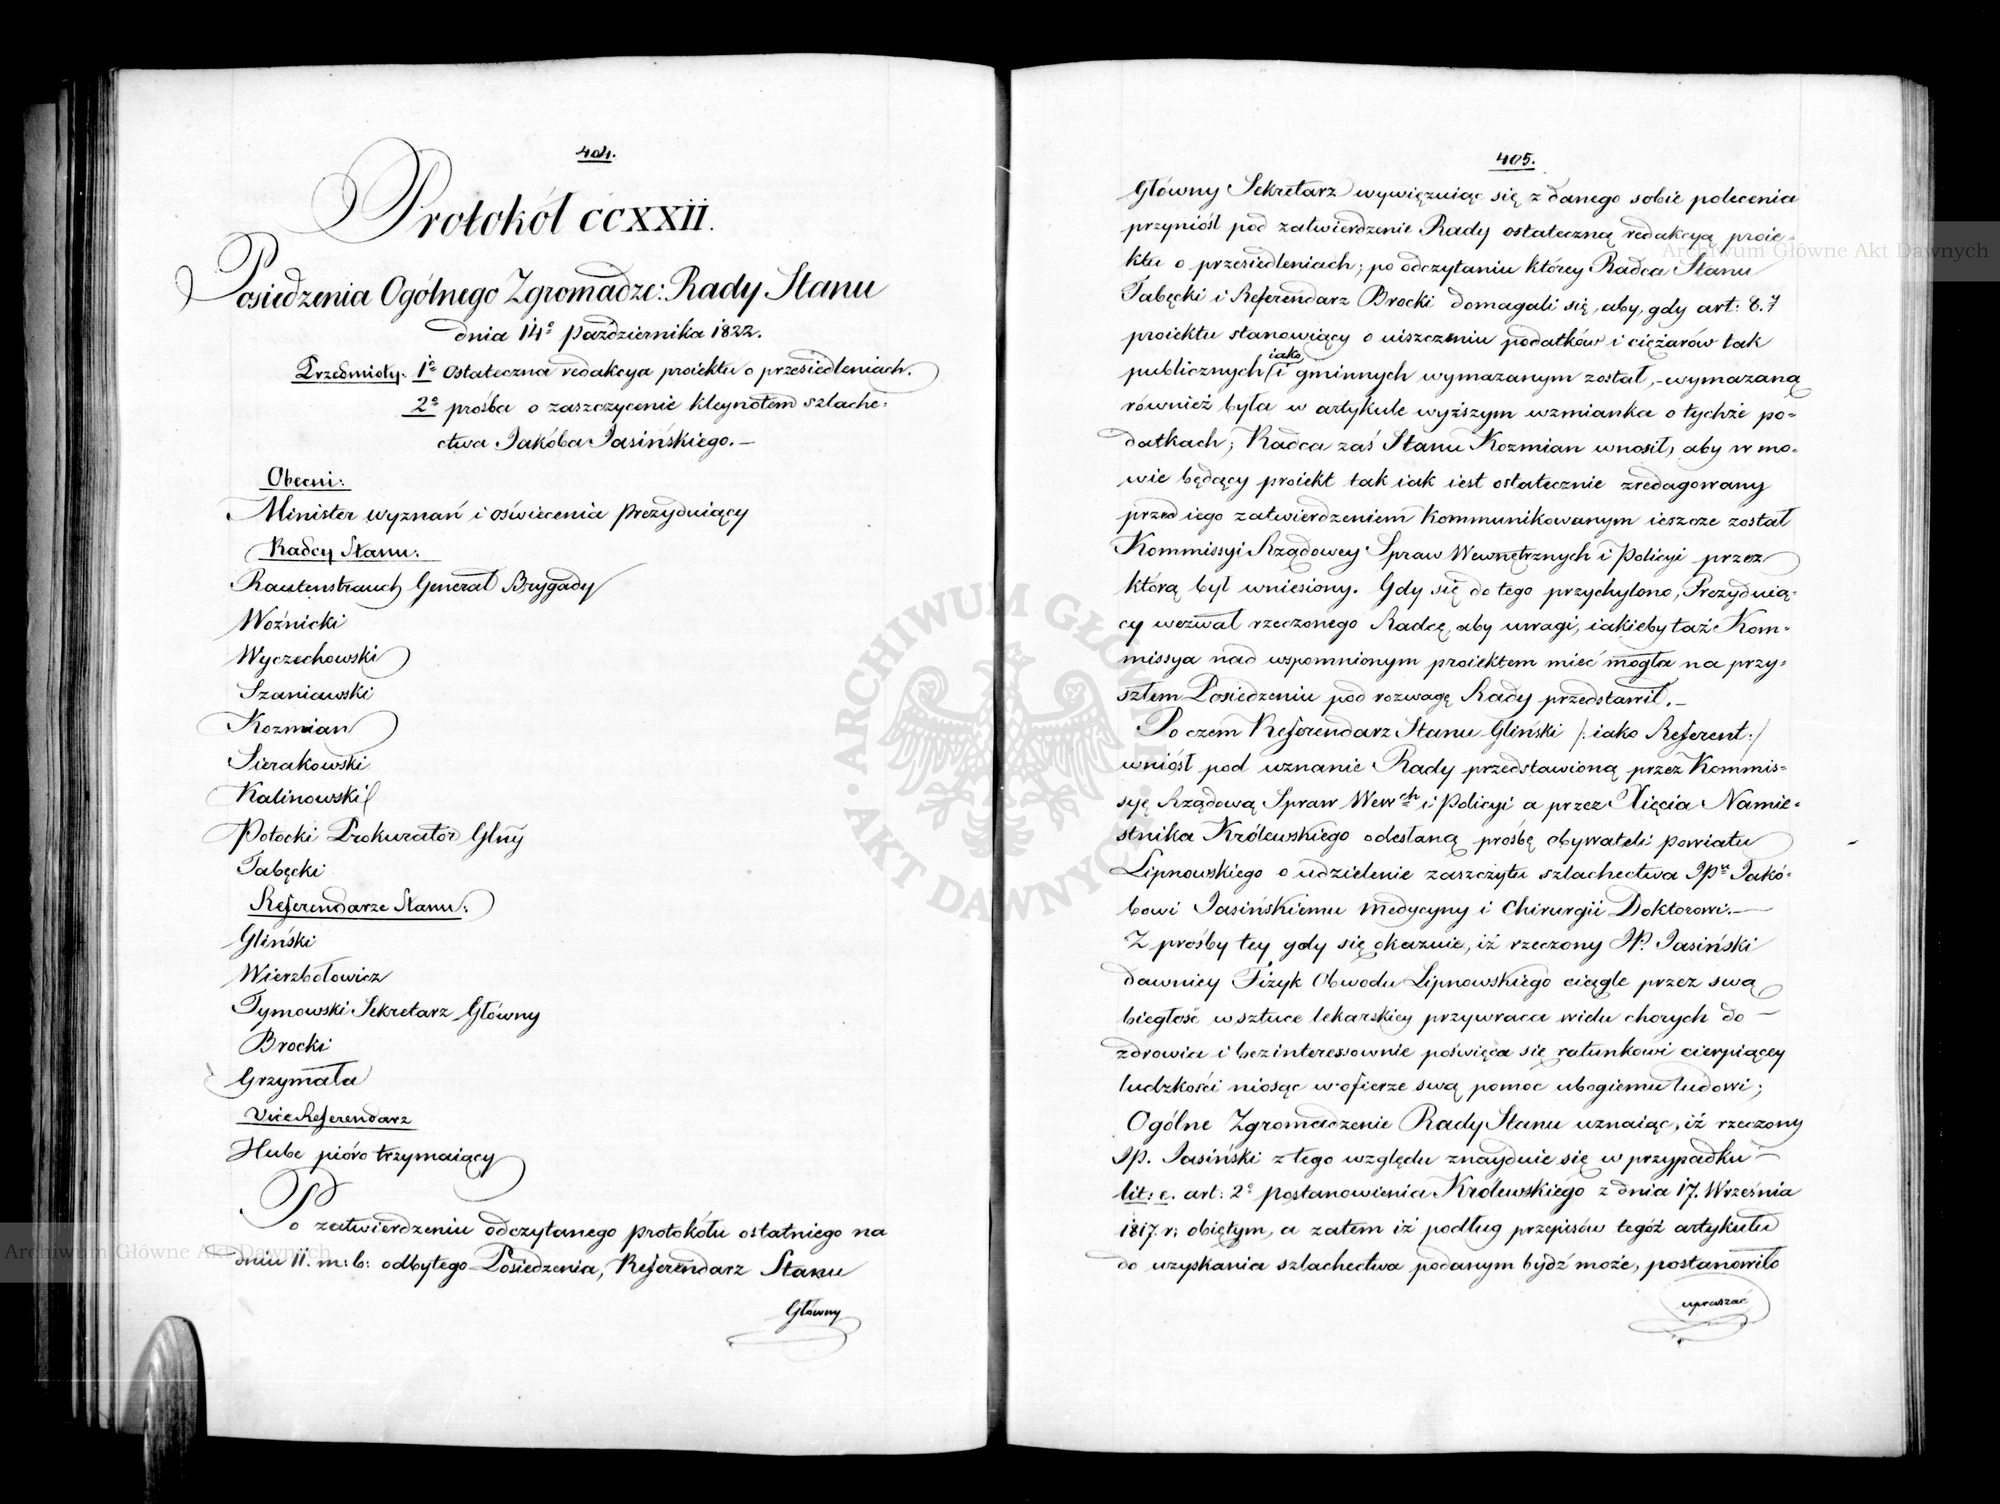 404.
Protokół CCXXII.
Posiedzenia Ogólnego Zgromadze: Rady Stanu
dnia 14º Października 1822.
Przedmioty. 1º Ostateczna redakcya proiektu o przesiedleniach.
2º prośba o zaszczycenie kleynotem szlache:
ctwa Jakóba Jasińskiego.—
Obecni:
Minister wyznań i oświecenia Prezyduiący
Radcy Stanu:
Rautenstrauch Generał Brygady
Woźnicki
Wyczechowski
Szaniawski
Kozmian
Sierakowski
Kalinowski
Potocki Prokurator Glny
Tabęcki
Referendarze Stanu:
Gliński
Wierzbołowicz
Tymowski Sekretarz Główny
Brocki
Grzymała
ViceReferendarz
Hube pióro trzymaiący
Po zatwierdzeniu odczytanego protokółu ostatniego na
dniu 11. m: b: odbytego Posiedzenia, Referendarz Stanu
Główny
405.
Główny Sekretarz wywięzuiąc się z danego sobie polecenia
przyniósł pod zatwierdzenie Rady ostateczną redakcyą proie-
ktu o przesiedleniach; po odczytaniu którey Radca Stanu
Tabęcki i Referendarz Brocki domagali się, aby, gdy art: 8.7
proiektu stanowiący o uiszczeniu podatków i ciężarów tak
publicznych iako i gminnych wymazanym został, wymazaną
również była w artykule wyższym wzmianka o tychże po-
datkach; Radca zaś Stanu Kozmian wnosił, aby w mo-
wie będący proiekt tak iak iest ostatecznie zredagowany
przed iego zatwierdzeniem Kommunikowanym ieszcze został
Kommissyi Rządowey Spraw Wewnętrznych i Policyi przez
którą był wniesiony. Gdy się do tego przychylono, Prezyduią-
cy wezwał rzeczonego Radcę, aby uwagi, iakieby taż Kom-
missya nad wspomnionym proiektem mieć mogła na przy-
szłem Posiedzeniu pod rozwagę Rady przedstawił.—
Po czem Referendarz Stanu Gliński /: iako Referent :/
wniósł pod uznanie Rady przedstawioną przez Kommis-
syę Rządową Spraw Wewch i Policyi a przez Xięcia Namie-
stnika Królewskiego odesłaną prośbę obywateli Powiatu
Lipnowskiego o udzielenie zaszczytu szlachectwa JPu Jakó-
bowi Jasińskiemu Medycyny i Chirurgii Doktorowi.—
Z prośby tey gdy się okazuie, iż rzeczony JP. Jasiński
dawniey Fizyk Obwodu Lipnowskiego ciągle przez swą
biegłość w sztuce lekarskiey przywraca wielu chorych do
zdrowia i bezinteressownie poświęca się ratunkowi cierpiącey
ludzkości niosąc w ofierze swą pomoc ubogiemu ludowi;
Ogólne Zgromadzenie Rady Stanu uznaiąc, iż rzeczony
JP. Jasiński z tego względu znayduie się w przypadku
lit: e. art: 2º Postanowienia Królewskiego z dnia 17. Września
1817. r: obiętym, a zatem iż podług przepisów tegóż artykułu
do uzyskania szlachectwa podanym bydź może, postanowiło
upraszać
Archiwum Główne Akt Dawnych
Archiwum Główne Akt Dawnych
ARCHIWUM GŁÓWNE AKT DAWNYCH